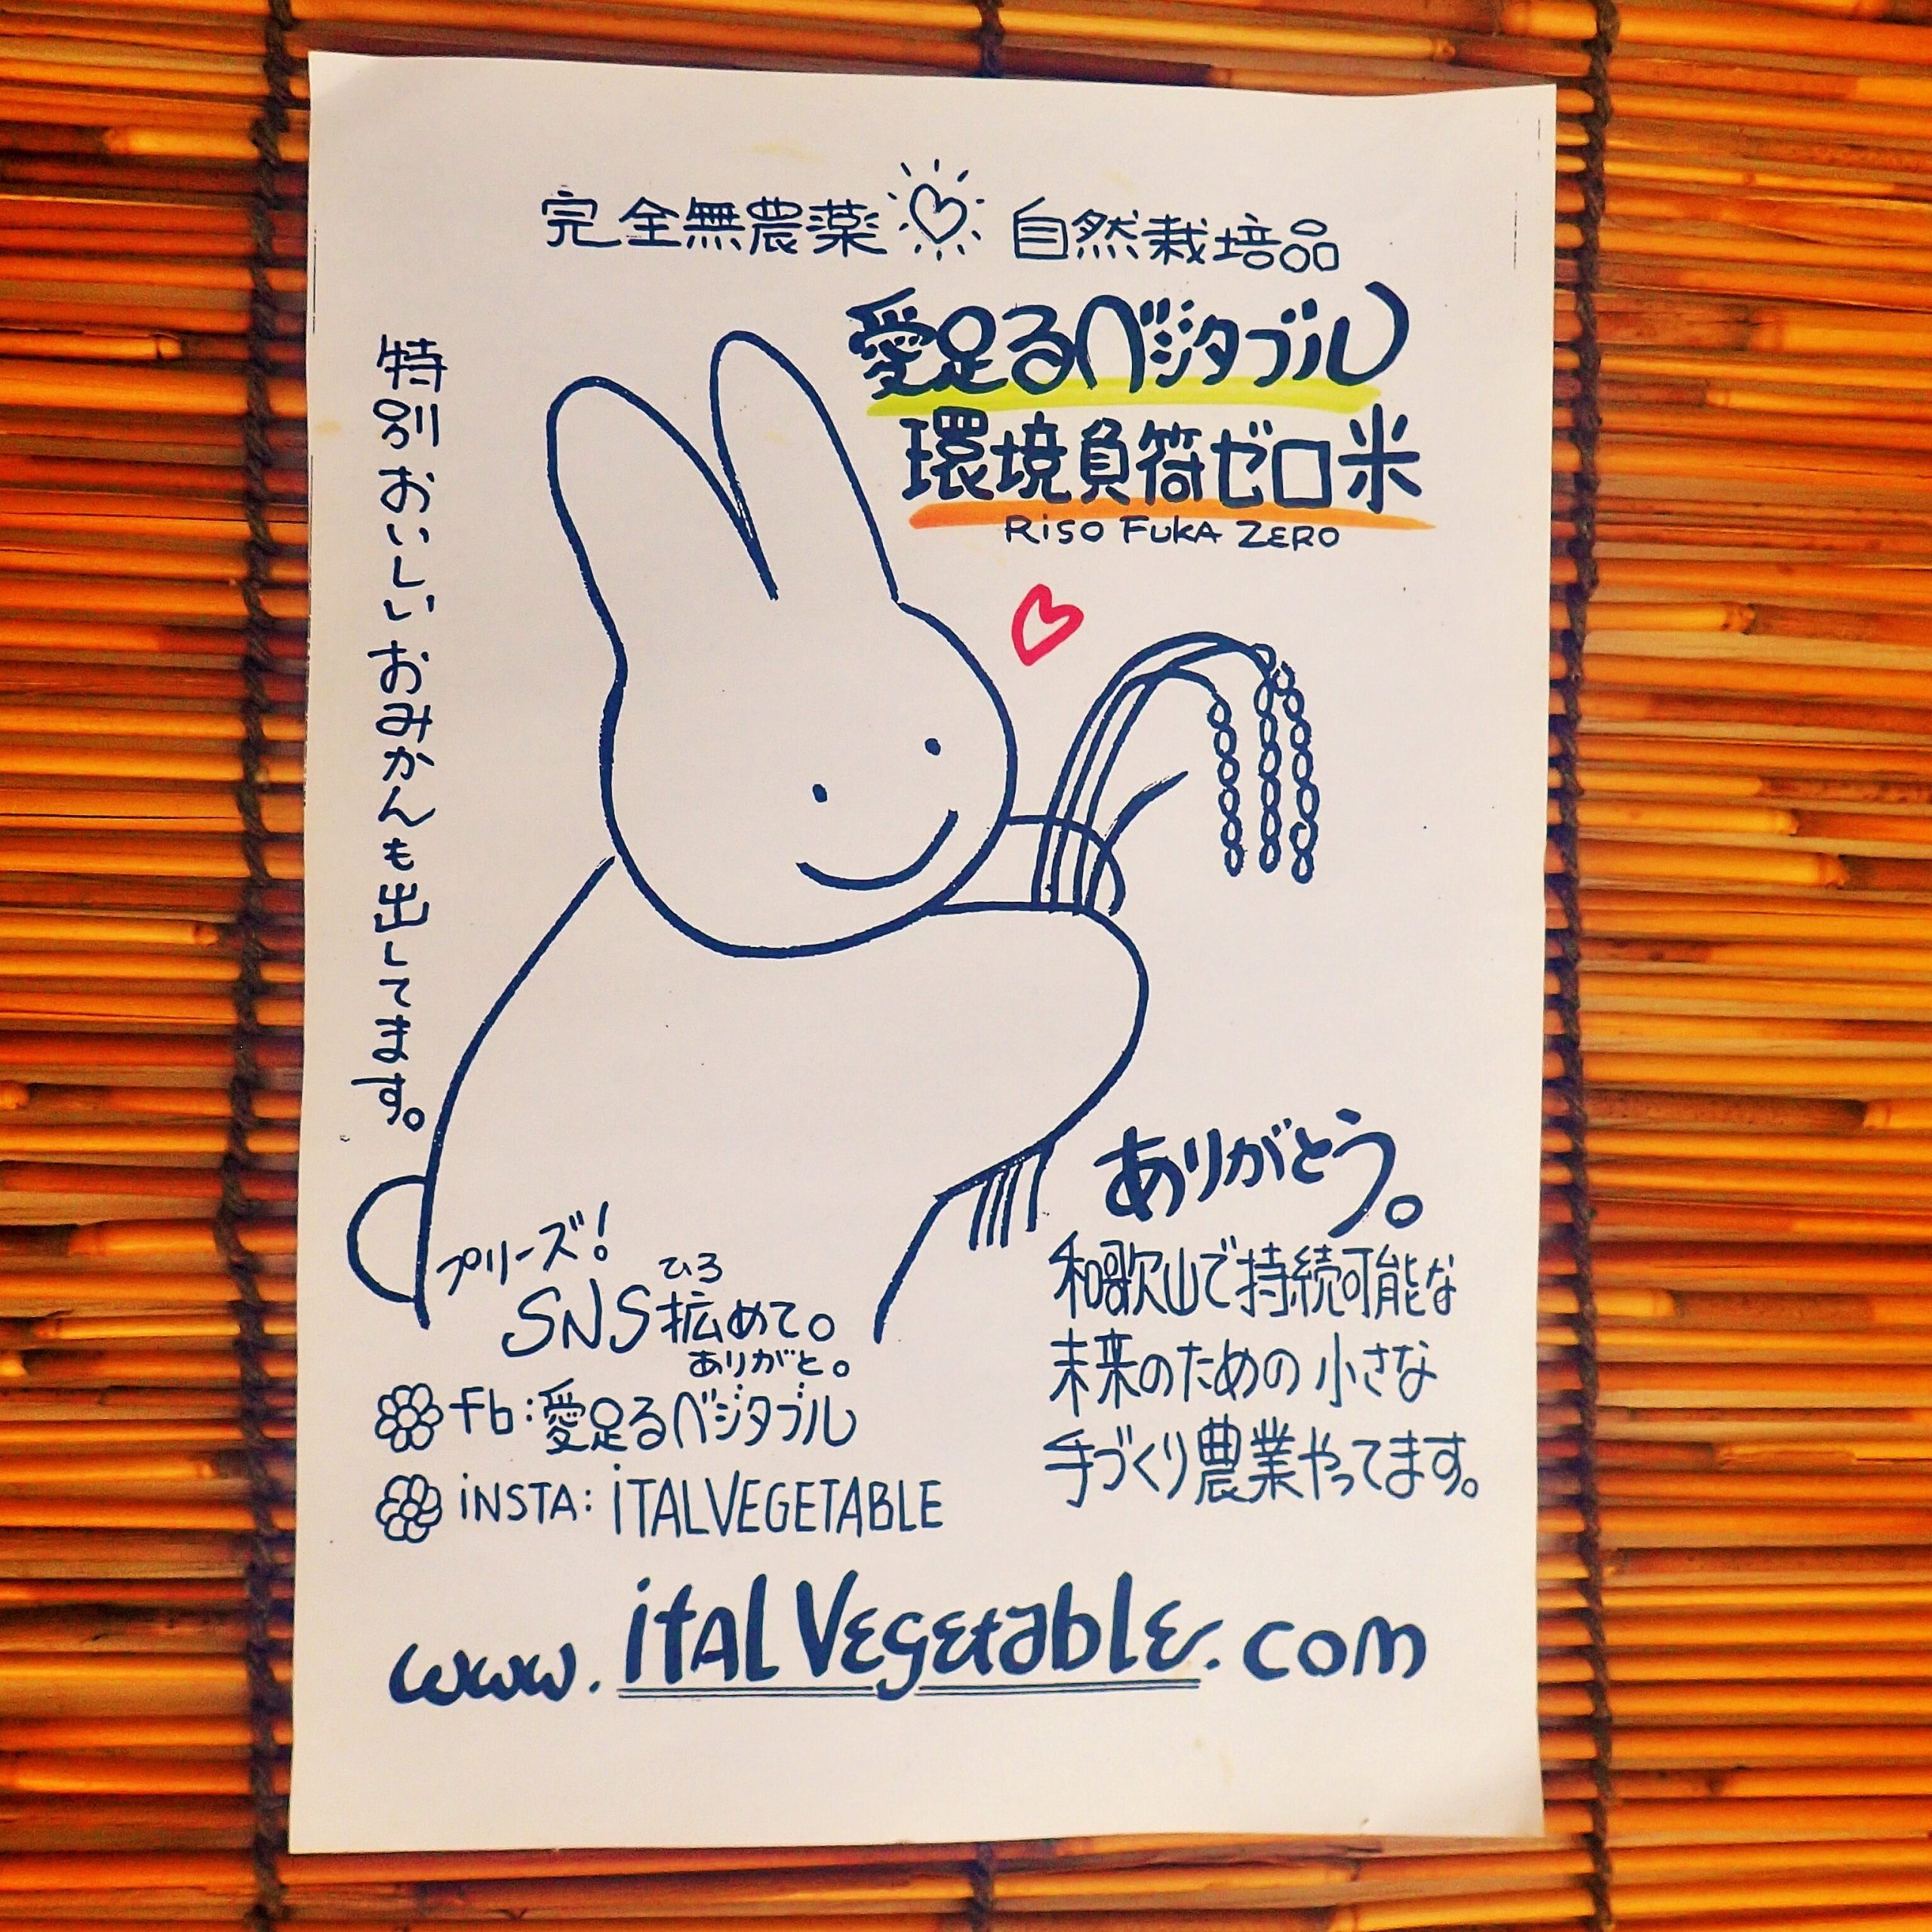 完全無農薬 自然栽培品
愛足るベジタブル
環境負荷ゼロ米
RiSO FUKA ZERO
特別おいしいおみかんも出してます。
ありがとう。
和歌山で持続可能な
未来のための小さな
手づくり農業やってます。
プリーズ!
ひろ
SNS拡めて。
ありがと。
fb:愛足るベジタブル
iNSTA: iTALVEGETABLE
www.itAlVegetable.com